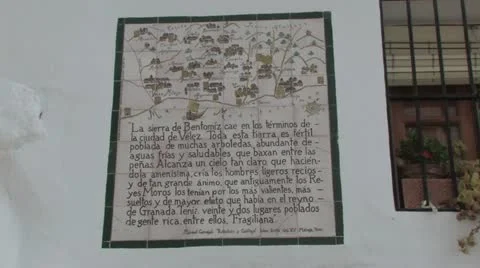 "La sierra de Bentomiz cae en los términos de
la ciudad de Velez. Toda esta tierra es fertil,
poblada de muchas arboledas, abundante de
aguas frias y saludables que baxan entre las
peñas. Alcanza un cielo tan claro que hacién-
dola amenisima, cria los hombres ligeros recios
y de tan grande ánimo, que antiguamente los Re-
yes Moros los tenian por los más valientes, más
sueltos y de mayor efeto que habia en el reyno
de Granada. Tenia veinte y dos lugares poblados
de gente rica, entre ellos, Fragiliana".